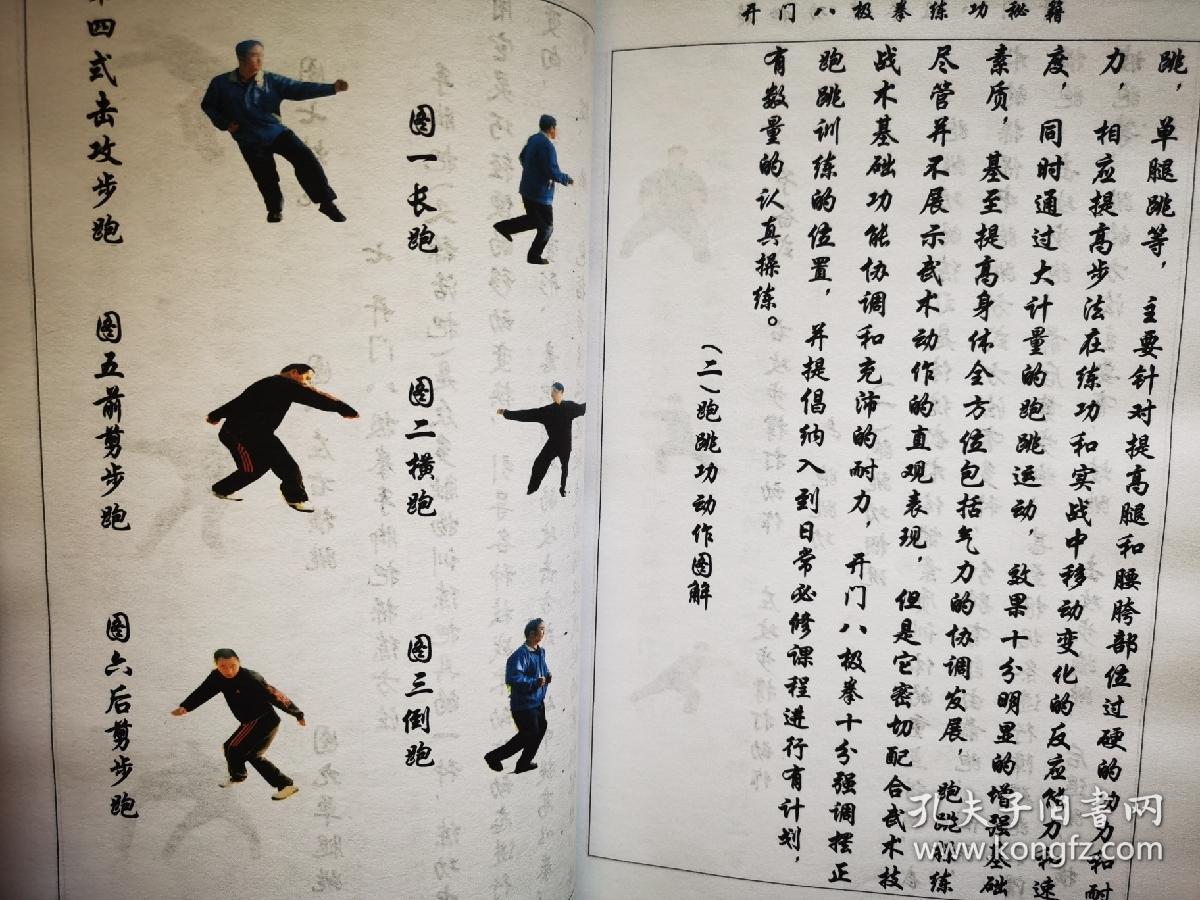 开门八极拳练功秘籍
跳，单腿跳等，主要针对提高腿和腰胯部位过硬的功力和耐
力，相应提高步法在练功和实战中移动变化的反应能力和速
度，同时通过大计量的跑跳运动，效果十分明显的增强基础
素质，基至提高身体全方位包括气力的协调发展，跑跳操练
尽管并不展示武术动作的直观表现，但是它密切配合武术技
战术基础功能协调和充沛的耐力，开门八极拳十分强调摆正
跑跳训练的位置，并提倡纳入到日常必修课程进行有计划，
有数量的认真操练。
（二）跑跳功动作图解
图一长跑
图二横跑
图三倒跑
四式击攻步跑
图五前剪步跑
图六后剪步跑
孔夫子旧书网
www.kongfz.com